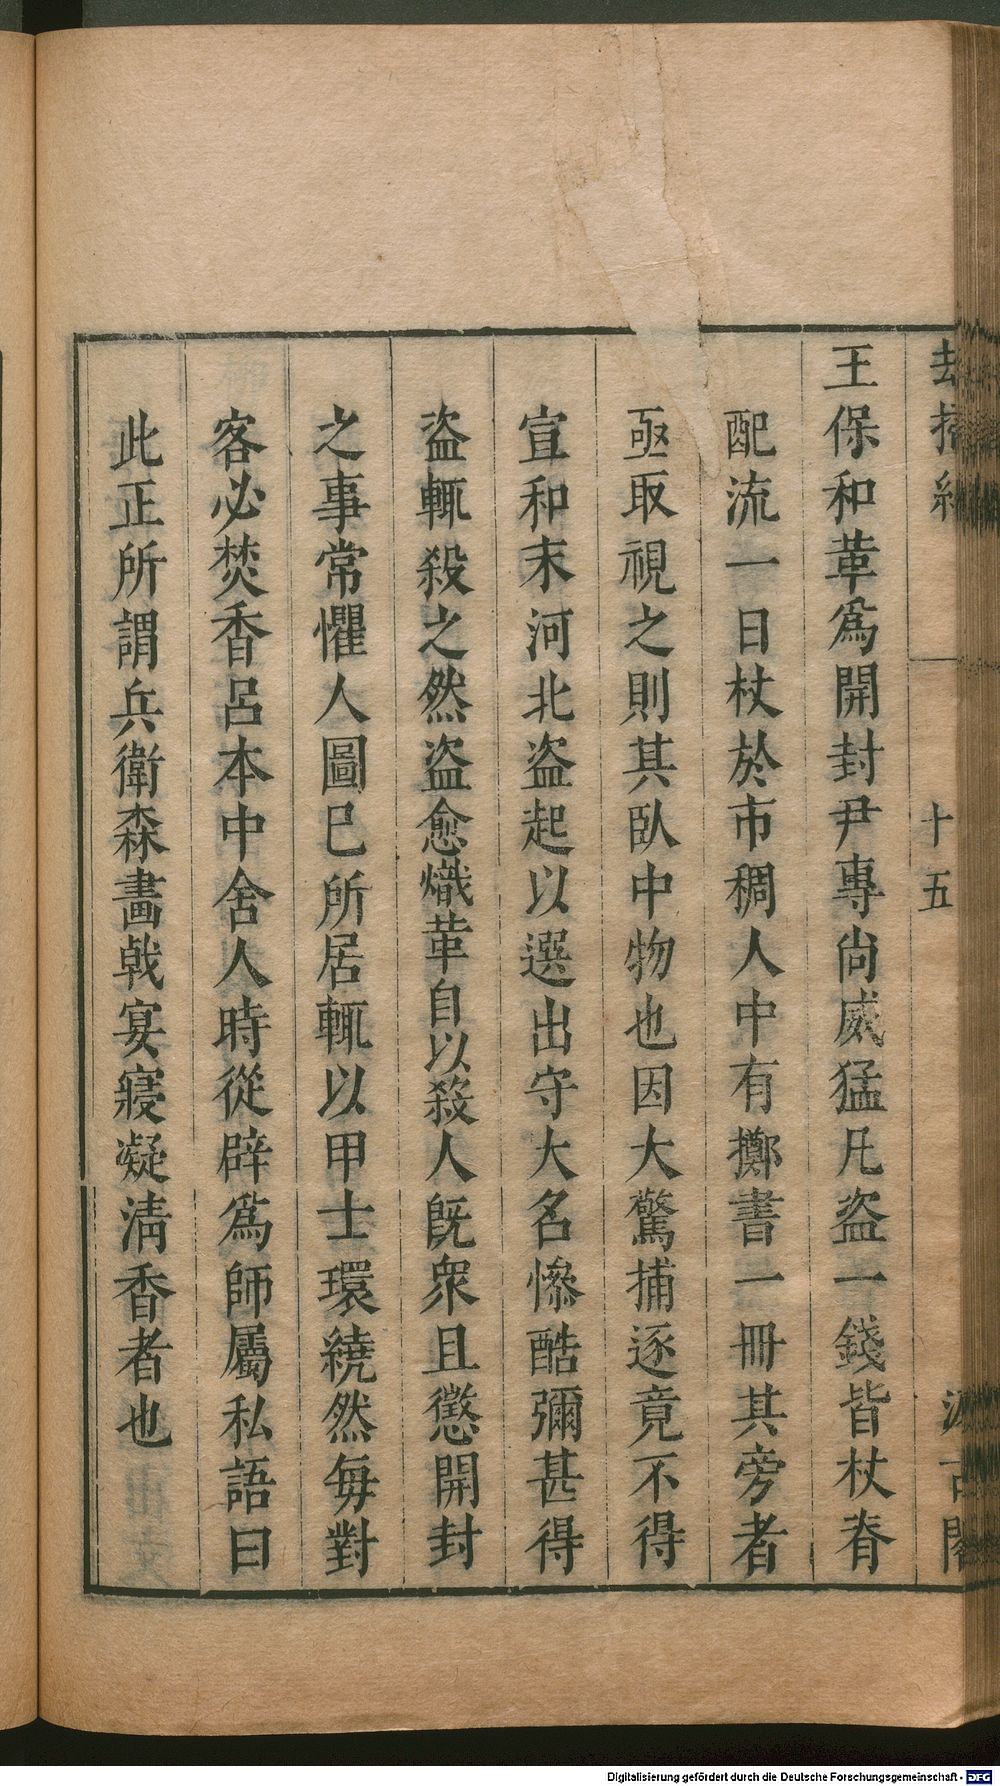 王保和革為開封尹專尚威猛凡盜一錢皆杖脊
配流一日杖於市稠人中有擲書一冊其旁者
亟取視之則其臥中物也因大驚捕逐竟不得
宣和末河北盜起以選出守大名慘酷彌甚得
盜輒殺之然盜愈熾革自以殺人旣衆且懲開封
之事常懼人圖已所居輒以甲士環繞然每對
客必焚香呂本中舍人時從辟為師屬私語曰
此正所謂兵衛森畫戟宴寢凝清香者也
十五
Digitalisierung gefördert durch die Deutsche Forschungsgemeinschaft - DFG